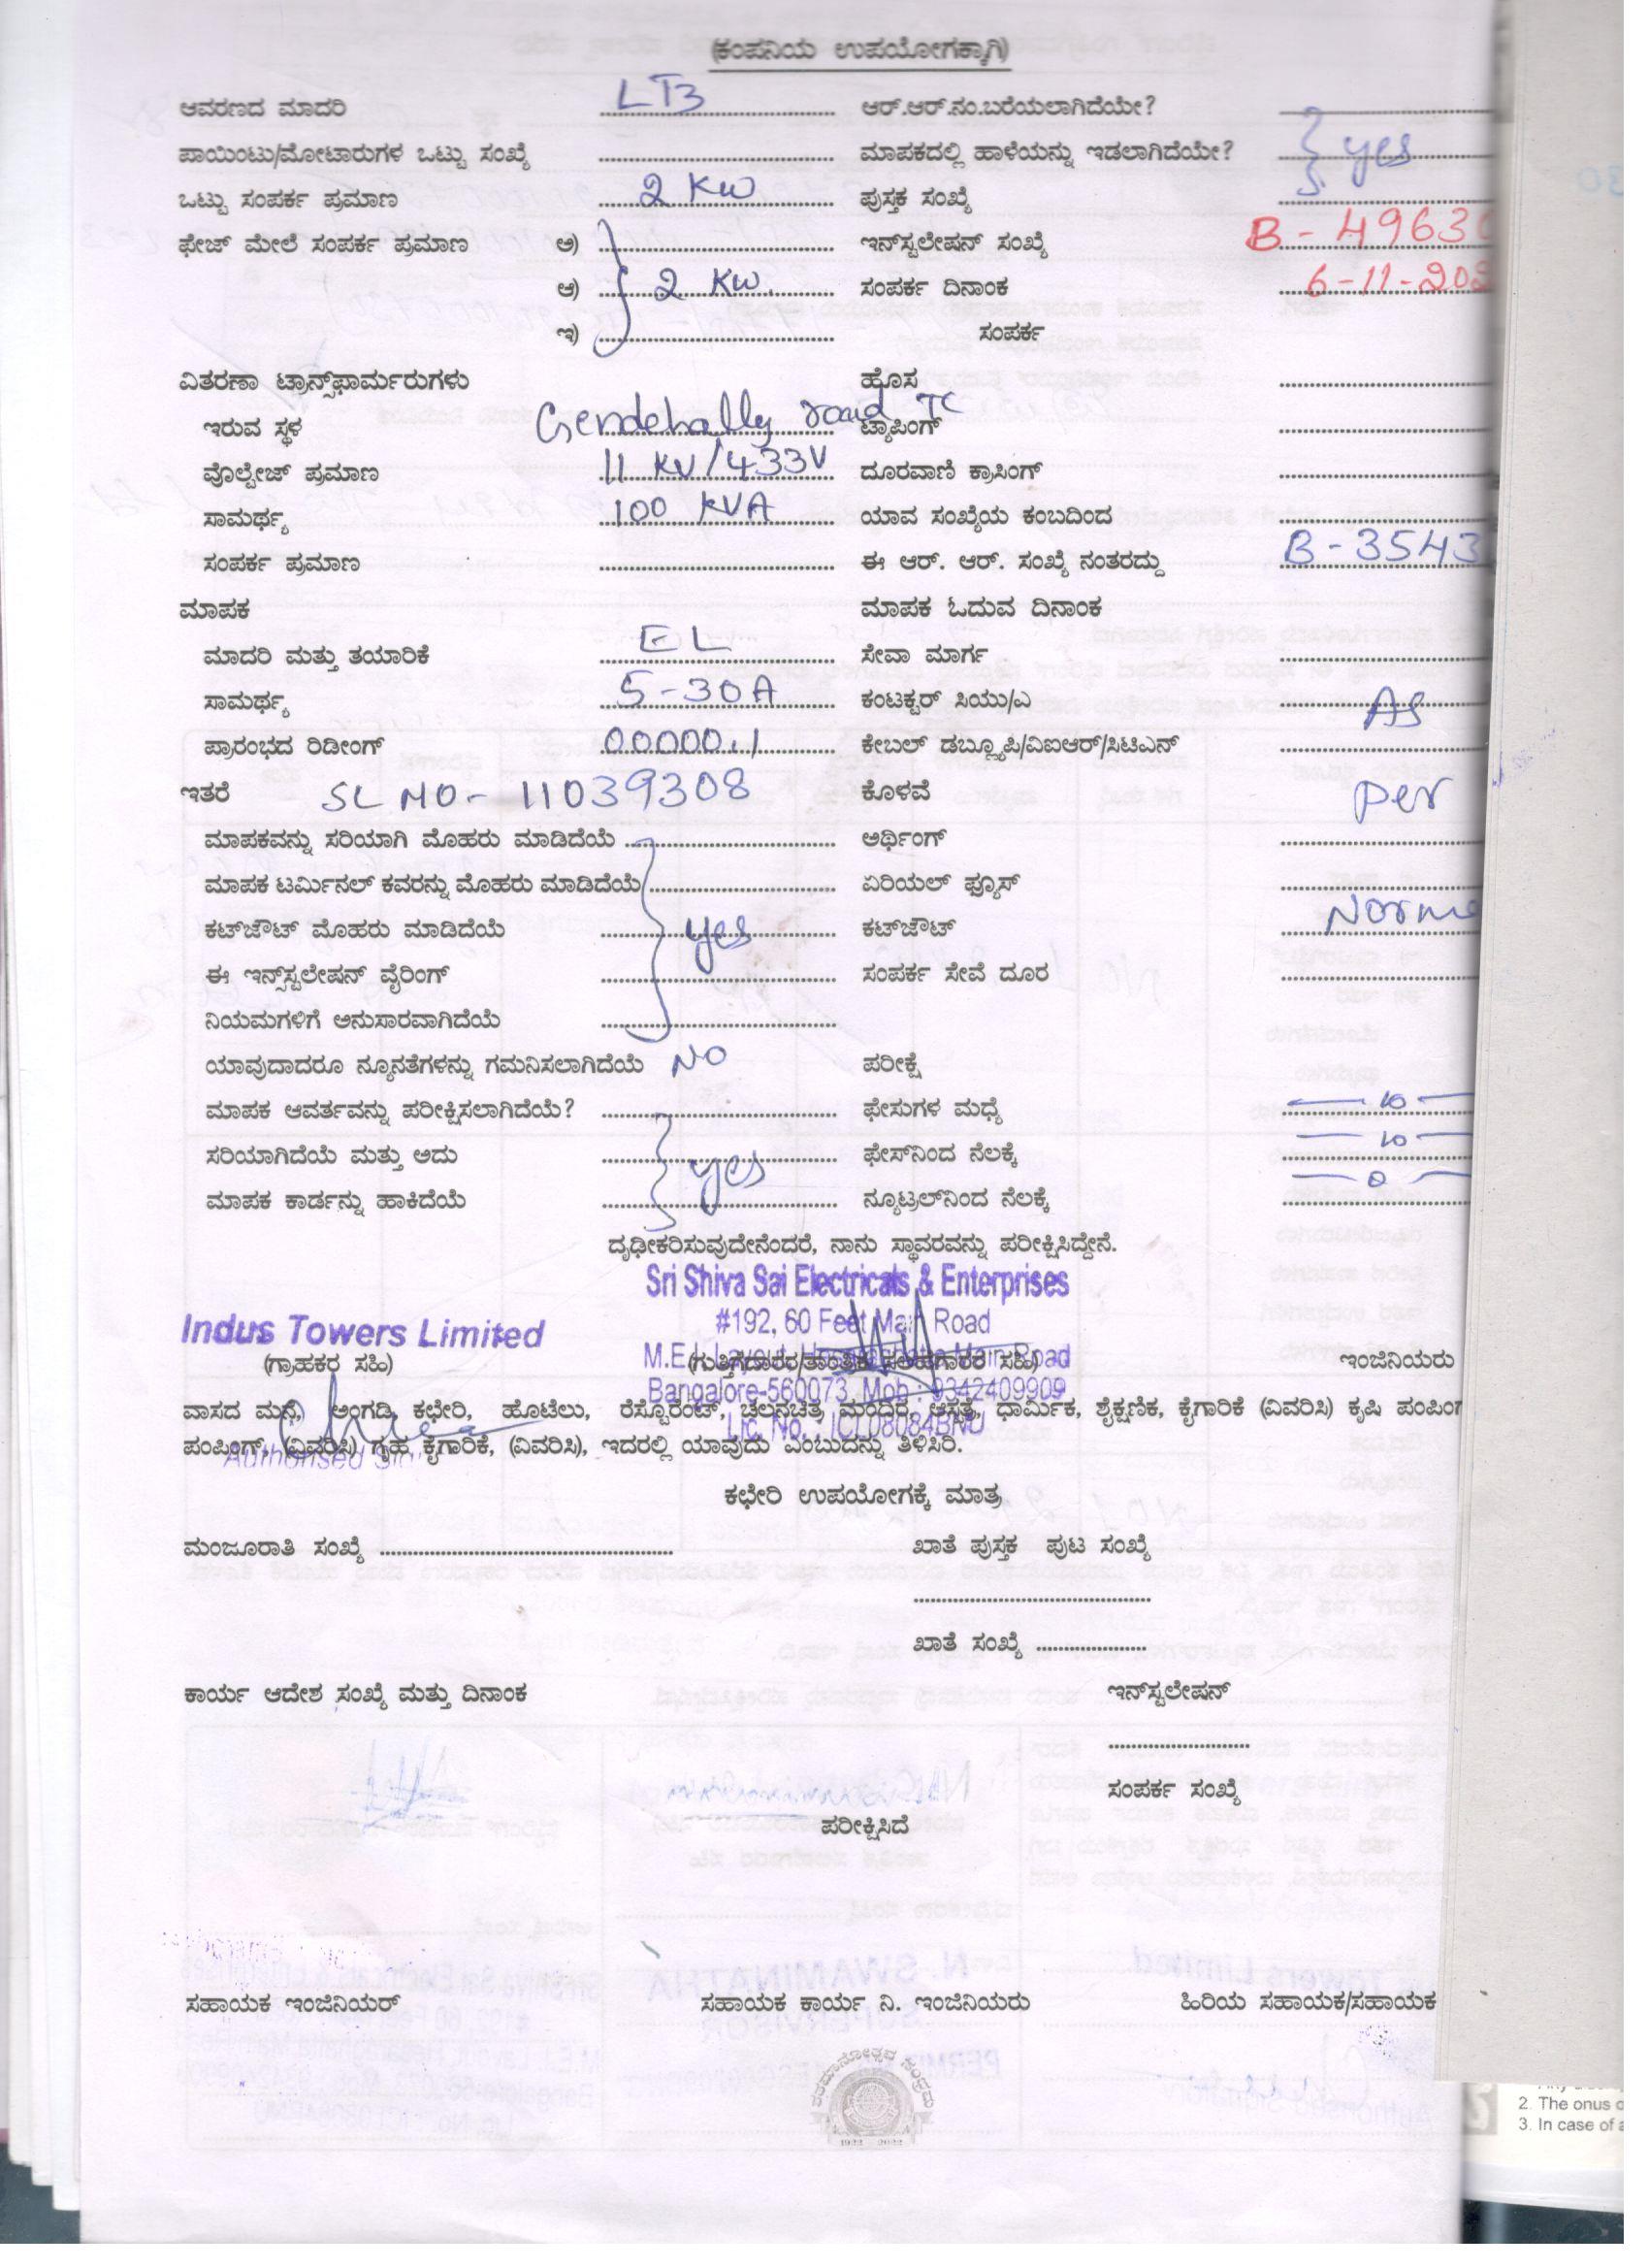 (ಕಂಪನಿಯ ಉಪಯೋಗಕ್ಕಾಗಿ)
ಆವರಣದ ಮಾದರಿ LT3 ಆರ್.ಆರ್.ನಂ.ಬರೆಯಲಾಗಿದೆಯೇ?
ಪಾಯಿಂಟು/ಮೋಟಾರುಗಳ ಒಟ್ಟು ಸಂಖ್ಯೆ ಮಾಪಕದಲ್ಲಿ ಹಾಳೆಯನ್ನು ಇಡಲಾಗಿದೆಯೇ? yes
ಒಟ್ಟು ಸಂಪರ್ಕ ಪ್ರಮಾಣ 2 KW ಪುಸ್ತಕ ಸಂಖ್ಯೆ
ಫೇಜ್ ಮೇಲೆ ಸಂಪರ್ಕ ಪ್ರಮಾಣ ಅ) ಇನ್‌ಸ್ಟಲೇಷನ್ ಸಂಖ್ಯೆ B - 4963
ಆ) 2 KW. ಸಂಪರ್ಕ ದಿನಾಂಕ 6-11-202
ಇ) ಸಂಪರ್ಕ
ವಿತರಣಾ ಟ್ರಾನ್ಸ್‌ಫಾರ್ಮರುಗಳು ಹೊಸ
ಇರುವ ಸ್ಥಳ Gendehally road TC ಟ್ಯಾಪಿಂಗ್
ವೊಲ್ಟೇಜ್ ಪ್ರಮಾಣ 11 KV/433V ದೂರವಾಣಿ ಕ್ರಾಸಿಂಗ್
ಸಾಮರ್ಥ್ಯ 100 KVA ಯಾವ ಸಂಖ್ಯೆಯ ಕಂಬದಿಂದ
ಸಂಪರ್ಕ ಪ್ರಮಾಣ ಈ ಆರ್. ಆರ್. ಸಂಖ್ಯೆ ನಂತರದ್ದು B - 3543
ಮಾಪಕ ಮಾಪಕ ಓದುವ ದಿನಾಂಕ
ಮಾದರಿ ಮತ್ತು ತಯಾರಿಕೆ EL ಸೇವಾ ಮಾರ್ಗ
ಸಾಮರ್ಥ್ಯ 5-30A ಕಂಟಕ್ಟರ್ ಸಿಯು/ಎ As
ಪ್ರಾರಂಭದ ರಿಡೀಂಗ್ 00000.1 ಕೇಬಲ್ ಡಬ್ಲ್ಯೂಪಿ/ವಿಐಆರ್/ಸಿಟಿಎನ್
ಇತರೆ SL NO- 11039308 ಕೊಳವೆ per
ಮಾಪಕವನ್ನು ಸರಿಯಾಗಿ ಮೊಹರು ಮಾಡಿದೆಯೆ ಅರ್ಥಿಂಗ್
ಮಾಪಕ ಟರ್ಮಿನಲ್ ಕವರನ್ನು ಮೊಹರು ಮಾಡಿದೆಯೆ ಏರಿಯಲ್ ಫ್ಯೂಸ್
ಕಟ್‌ಜೌಟ್ ಮೊಹರು ಮಾಡಿದೆಯೆ yes ಕಟ್‌ಜೌಟ್ Norm
ಈ ಇನ್ಸ್‌ಸ್ಟಲೇಷನ್ ವೈರಿಂಗ್ ಸಂಪರ್ಕ ಸೇವೆ ದೂರ
ನಿಯಮಗಳಿಗೆ ಅನುಸಾರವಾಗಿದೆಯೆ
ಯಾವುದಾದರೂ ನ್ಯೂನತೆಗಳನ್ನು ಗಮನಿಸಲಾಗಿದೆಯೆ NO ಪರೀಕ್ಷೆ
ಮಾಪಕ ಆವರ್ತವನ್ನು ಪರೀಕ್ಷಿಸಲಾಗಿದೆಯೆ? ಫೇಸುಗಳ ಮಧ್ಯೆ — 10 —
ಸರಿಯಾಗಿದೆಯೆ ಮತ್ತು ಅದು yes ಫೇಸ್‌ನಿಂದ ನೆಲಕ್ಕೆ — 10 —
ಮಾಪಕ ಕಾರ್ಡನ್ನು ಹಾಕಿದೆಯೆ ನ್ಯೂಟ್ರಲ್‌ನಿಂದ ನೆಲಕ್ಕೆ — 0 —
ದೃಢೀಕರಿಸುವುದೇನೆಂದರೆ, ನಾನು ಸ್ಥಾವರವನ್ನು ಪರೀಕ್ಷಿಸಿದ್ದೇನೆ.
Sri Shiva Sai Electricals & Enterprises
#192, 60 Feet Main Road
Indus Towers Limited
M.E.I. Layout, Main Road
(ಗ್ರಾಹಕರ ಸಹಿ) (ಗುತ್ತಿಗೆದಾರರ/ತಾಂತ್ರಿಕ ಸಲಹಗಾರರ ಸಹಿ) ಇಂಜಿನಿಯರು
Bangalore-560073, Mob : 9342409909
ವಾಸದ ಮನೆ, ಅಂಗಡಿ, ಕಛೇರಿ, ಹೊಟೆಲು, ರೆಸ್ಟೊರೆಂಟ್, ಚಲನಚಿತ್ರ ಮಂದಿರ, ಆಸ್ಪತ್ರೆ, ಧಾರ್ಮಿಕ, ಶೈಕ್ಷಣಿಕ, ಕೈಗಾರಿಕೆ (ವಿವರಿಸಿ) ಕೃಷಿ ಪಂಪಿಂಗ
Lic. No. : ICL08084BNU
ಪಂಪಿಂಗ್, (ವಿವರಿಸಿ) ಗೃಹ ಕೈಗಾರಿಕೆ, (ವಿವರಿಸಿ), ಇದರಲ್ಲಿ ಯಾವುದು ಎಂಬುದನ್ನು ತಿಳಿಸಿರಿ.
Authorised Sig
ಕಛೇರಿ ಉಪಯೋಗಕ್ಕೆ ಮಾತ್ರ
ಮಂಜೂರಾತಿ ಸಂಖ್ಯೆ ಖಾತೆ ಪುಸ್ತಕ ಪುಟ ಸಂಖ್ಯೆ
ಖಾತೆ ಸಂಖ್ಯೆ
ಕಾರ್ಯ ಆದೇಶ ಸಂಖ್ಯೆ ಮತ್ತು ದಿನಾಂಕ ಇನ್‌ಸ್ಟಲೇಷನ್
ಸಂಪರ್ಕ ಸಂಖ್ಯೆ
ಪರೀಕ್ಷಿಸಿದೆ
ಸಹಾಯಕ ಇಂಜಿನಿಯರ್ ಸಹಾಯಕ ಕಾರ್ಯ ನಿ. ಇಂಜಿನಿಯರು ಹಿರಿಯ ಸಹಾಯಕ/ಸಹಾಯಕ
1922 2022
2. The onus
3. In case of